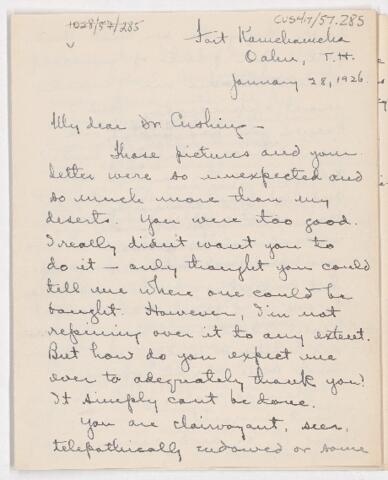 1028/57/285
CUS417/57.285
Fort Kamehameha
Oahu, T.H.
January 28, 1926
My dear Dr. Cushing —
Those pictures and your
letter were so unexpected and
so much more than my
deserts. You were too good.
I really didn't want you to
do it — only thought you could
tell me where one could be
bought. However, I'm not
repining over it to any extent.
But how do you expect me
ever to adequately thank you?
It simply can't be done.
You are clairvoyant, seer,
telepathically endowed or some